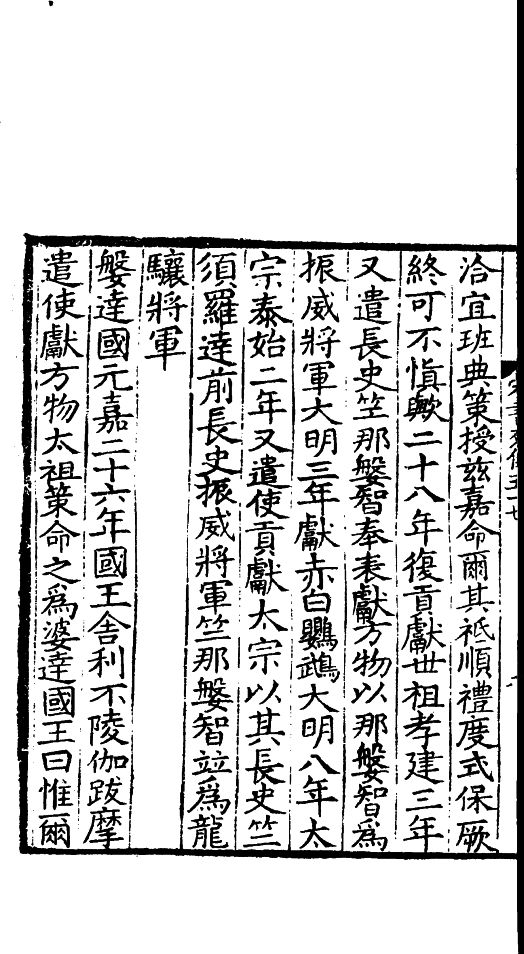 洽宜班典策授兹嘉命爾其祗順禮度式保厥
終可不慎歟二十八年復貢獻世祖孝建三年
又遣長史竺那媻智奉表獻方物以那媻智爲
振威將軍大明三年獻赤白鸚鵡大明八年太
宗泰始二年又遣使貢獻太宗以其長史竺
須羅達前長史振威將軍竺那媻智並爲龍
驤將軍
媻達國元嘉二十六年國王舍利不陵伽跋摩
遣使獻方物太祖策命之爲婆達國王曰惟爾